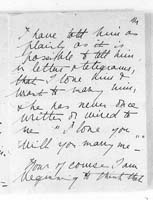 I have told him as
plainly as it is
possible to tell him
in letters & telegrams,
that I love him &
want to marry him,
& he has never once
written or wired to
me "I love you"
Will you marry me —
Now of course I am
beginning to think that